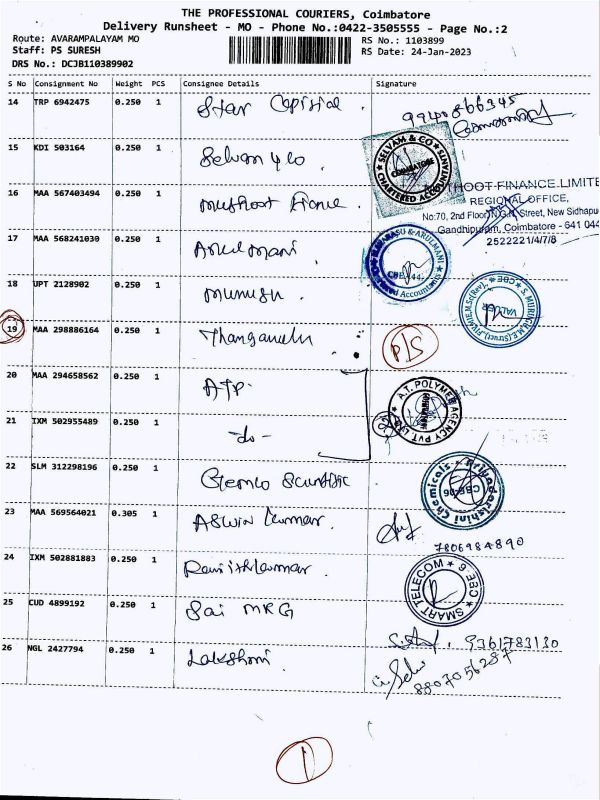 THE PROFESSIONAL COURIERS, Coimbatore
Delivery Runsheet - MO - Phone No.:0422-3505555 - Page No.:2
Route: AVARAMPALAYAM MO
RS No.: 1103899
Staff: PS SURESH
RS Date: 24-Jan-2023
DRS No.: DCJB110389902
S No Consignment No Weight PCS Consignee Details Signature
14 TRP 6942475 0.250 1 Star Capital. 9940866345
15 KDI 503164 0.250 1 Selvam & Co. SELVAM & CO CHARTERED ACCOUNTANTS COIMBATORE
16 MAA 567403494 0.250 1 Muthoot Finance.
THOOT FINANCE LIMITE
REGIONAL OFFICE,
No:70, 2nd Floor, N.G.N. Street, New Sidhapu
Gandhipuram, Coimbatore - 641 044
2522221/4/7/8
17 MAA 568241030 0.250 1 Arul Mani. & ARULMANI
18 UPT 2128902 0.250 1 S. MURUGH VALUER CBE
19 MAA 298886164 0.250 1 Thangavelu P/S
20 MAA 294658562 0.250 1 ATP. A.T. POLYMER AGENCY PVT. LTD.
21 IXM 502955489 0.250 1 -do-
22 SLM 312298196 0.250 1 Gemco Scientific Priyadarshini Chemicals CBE-06
23 MAA 569564021 0.305 1 Aswin Kumar. 7806984890
24 IXM 502881883 0.250 1 Ranjithkumar. SMART TELECOM CBE-6
25 CUD 4899192 0.250 1 Sai MRG 9361783130
26 NGL 2427794 0.250 1 Lakshmi. 8807056287
1